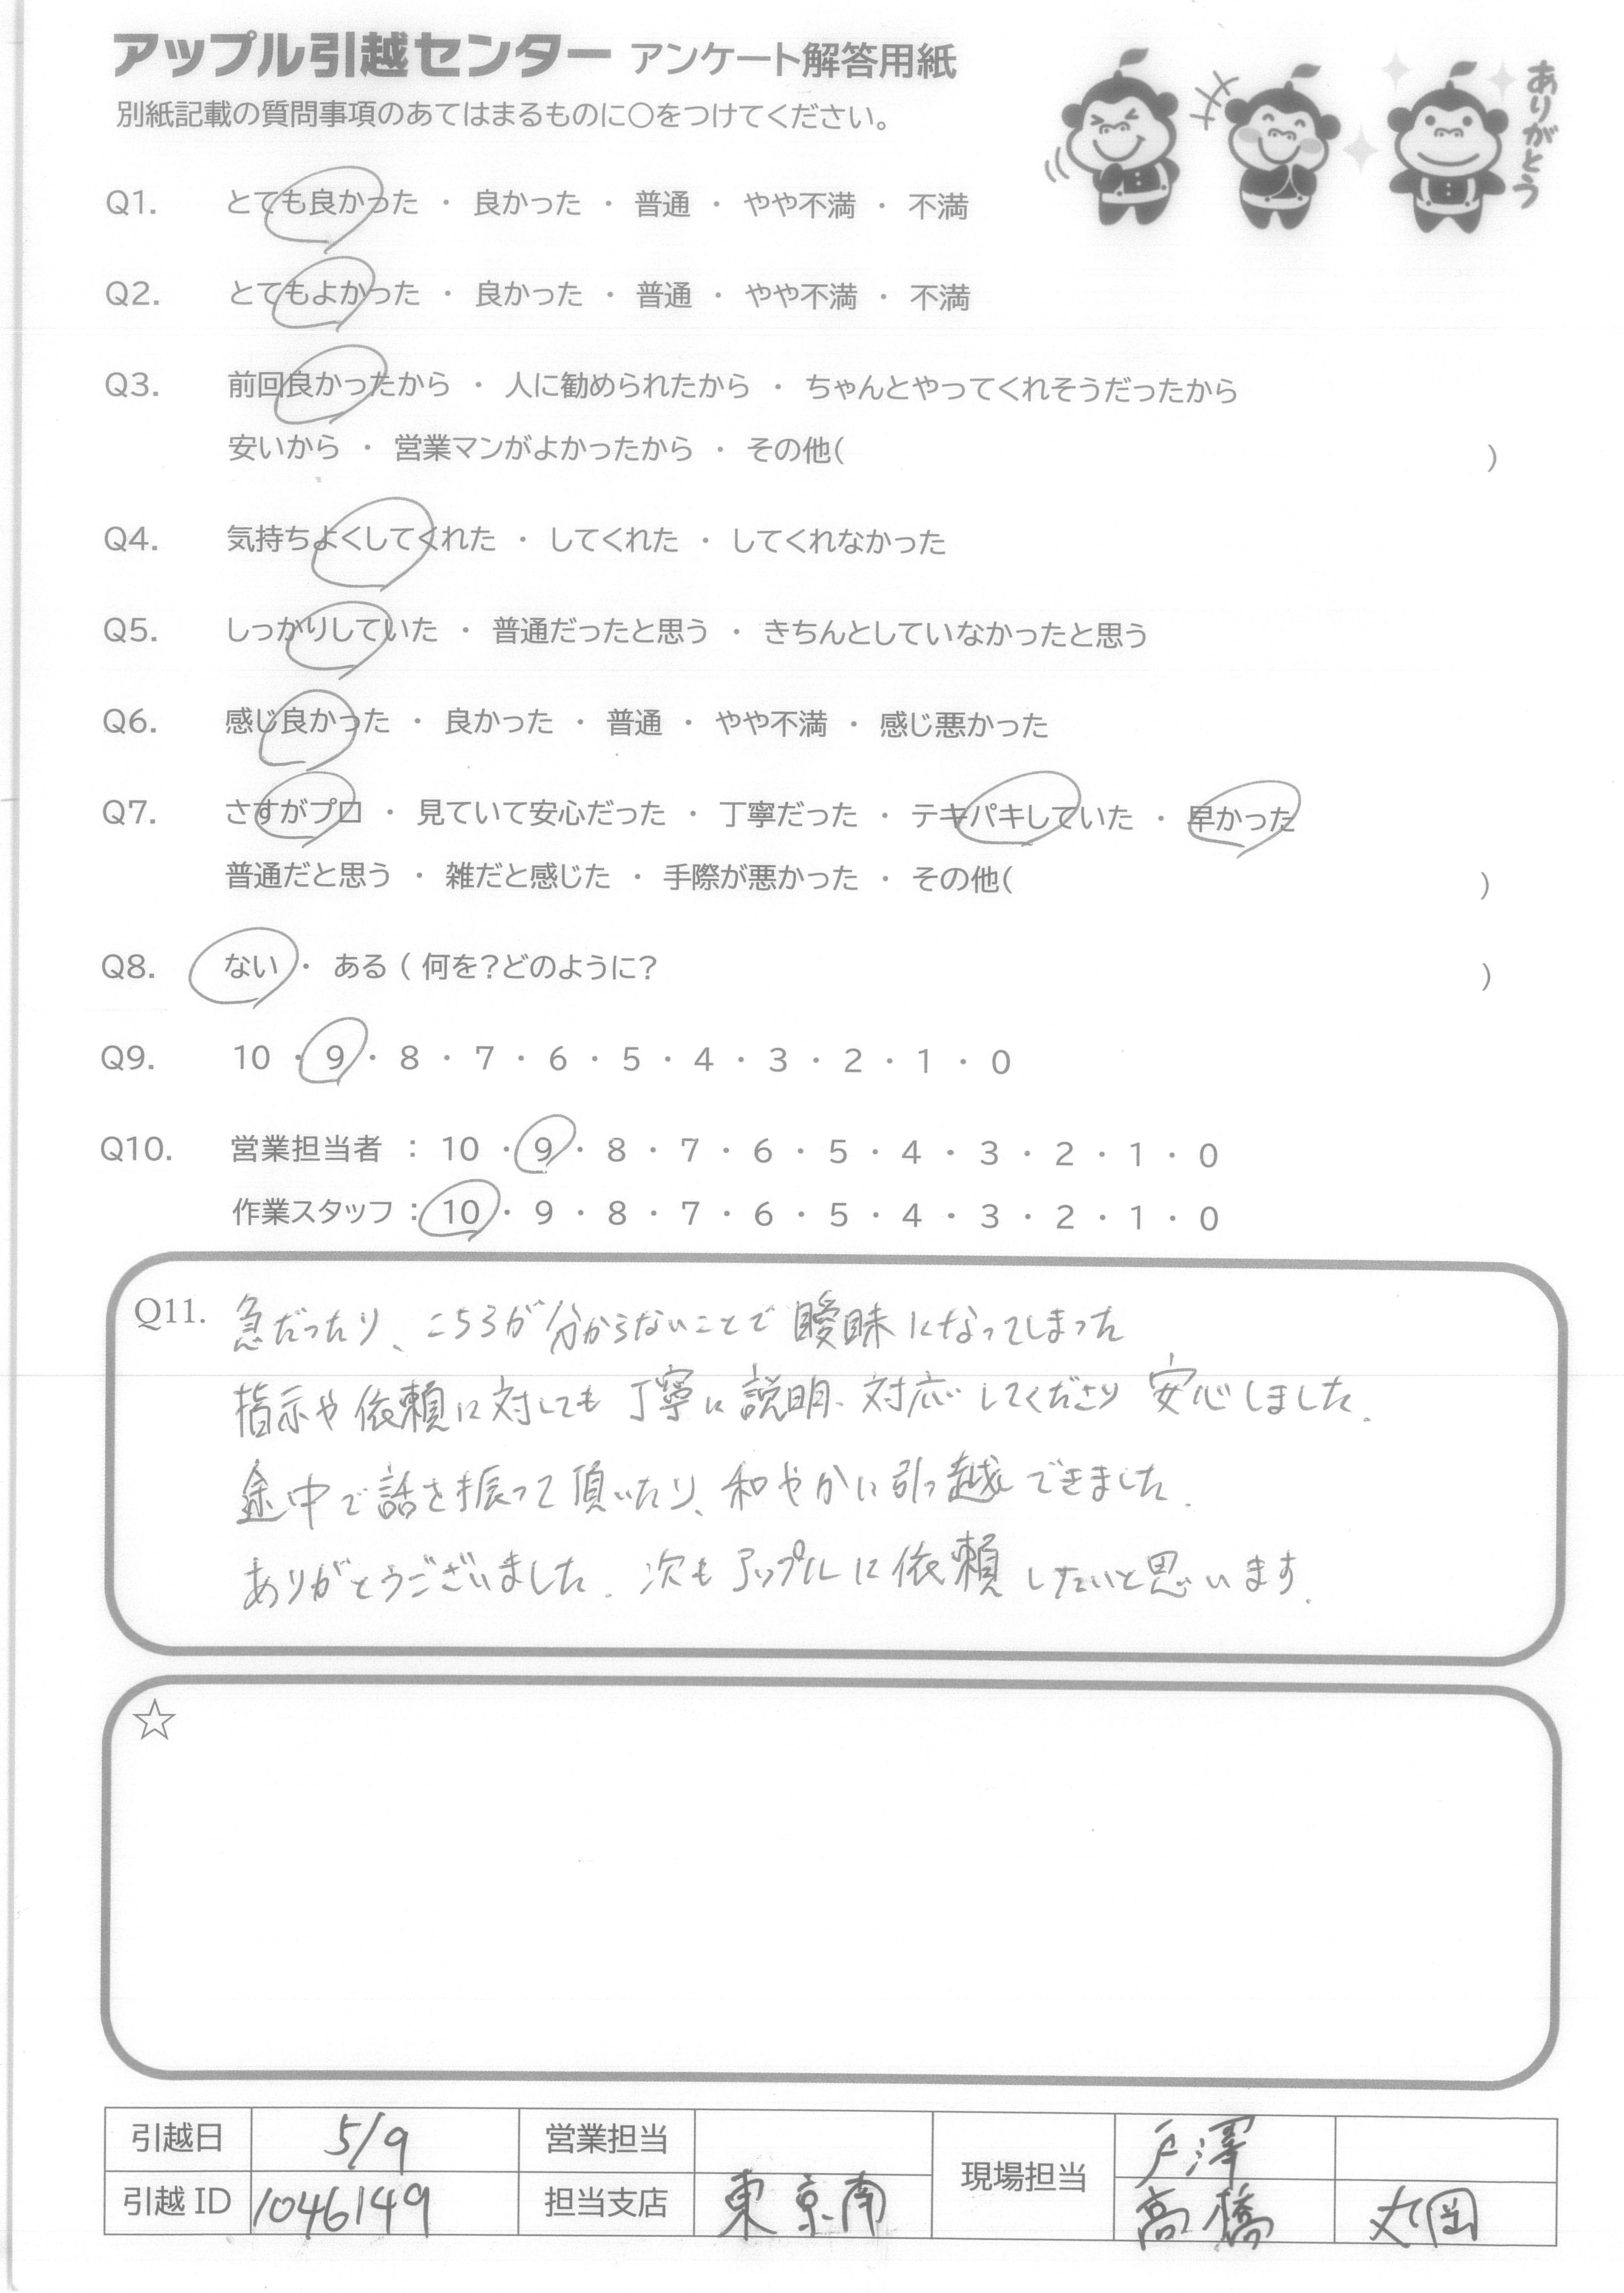 アップル引越センター アンケート解答用紙
別紙記載の質問事項のあてはまるものに〇をつけてください。
ありがとう
Q1. とても良かった ・ 良かった ・ 普通 ・ やや不満 ・ 不満
Q2. とてもよかった ・ 良かった ・ 普通 ・ やや不満 ・ 不満
Q3. 前回良かったから ・ 人に勧められたから ・ ちゃんとやってくれそうだったから
安いから ・ 営業マンがよかったから ・ その他( )
Q4. 気持ちよくしてくれた ・ してくれた ・ してくれなかった
Q5. しっかりしていた ・ 普通だったと思う ・ きちんとしていなかったと思う
Q6. 感じ良かった ・ 良かった ・ 普通 ・ やや不満 ・ 感じ悪かった
Q7. さすがプロ ・ 見ていて安心だった ・ 丁寧だった ・ テキパキしていた ・ 早かった
普通だと思う ・ 雑だと感じた ・ 手際が悪かった ・ その他( )
Q8. ない ・ ある ( 何を?どのように? )
Q9. 10 ・ 9 ・ 8 ・ 7 ・ 6 ・ 5 ・ 4 ・ 3 ・ 2 ・ 1 ・ 0
Q10. 営業担当者 : 10 ・ 9 ・ 8 ・ 7 ・ 6 ・ 5 ・ 4 ・ 3 ・ 2 ・ 1 ・ 0
作業スタッフ : 10 ・ 9 ・ 8 ・ 7 ・ 6 ・ 5 ・ 4 ・ 3 ・ 2 ・ 1 ・ 0
Q11. 急だったり、こちらが分からないことで曖昧になってしまった
指示や依頼に対しても丁寧に説明、対応してくださり安心しました。
途中で話を振って頂いたり、和やかに引っ越しできました。
ありがとうございました。次もアップルに依頼したいと思います。
☆
引越日 5/9 営業担当 現場担当 戸澤
引越ID 1046149 担当支店 東京南 高橋 丸岡